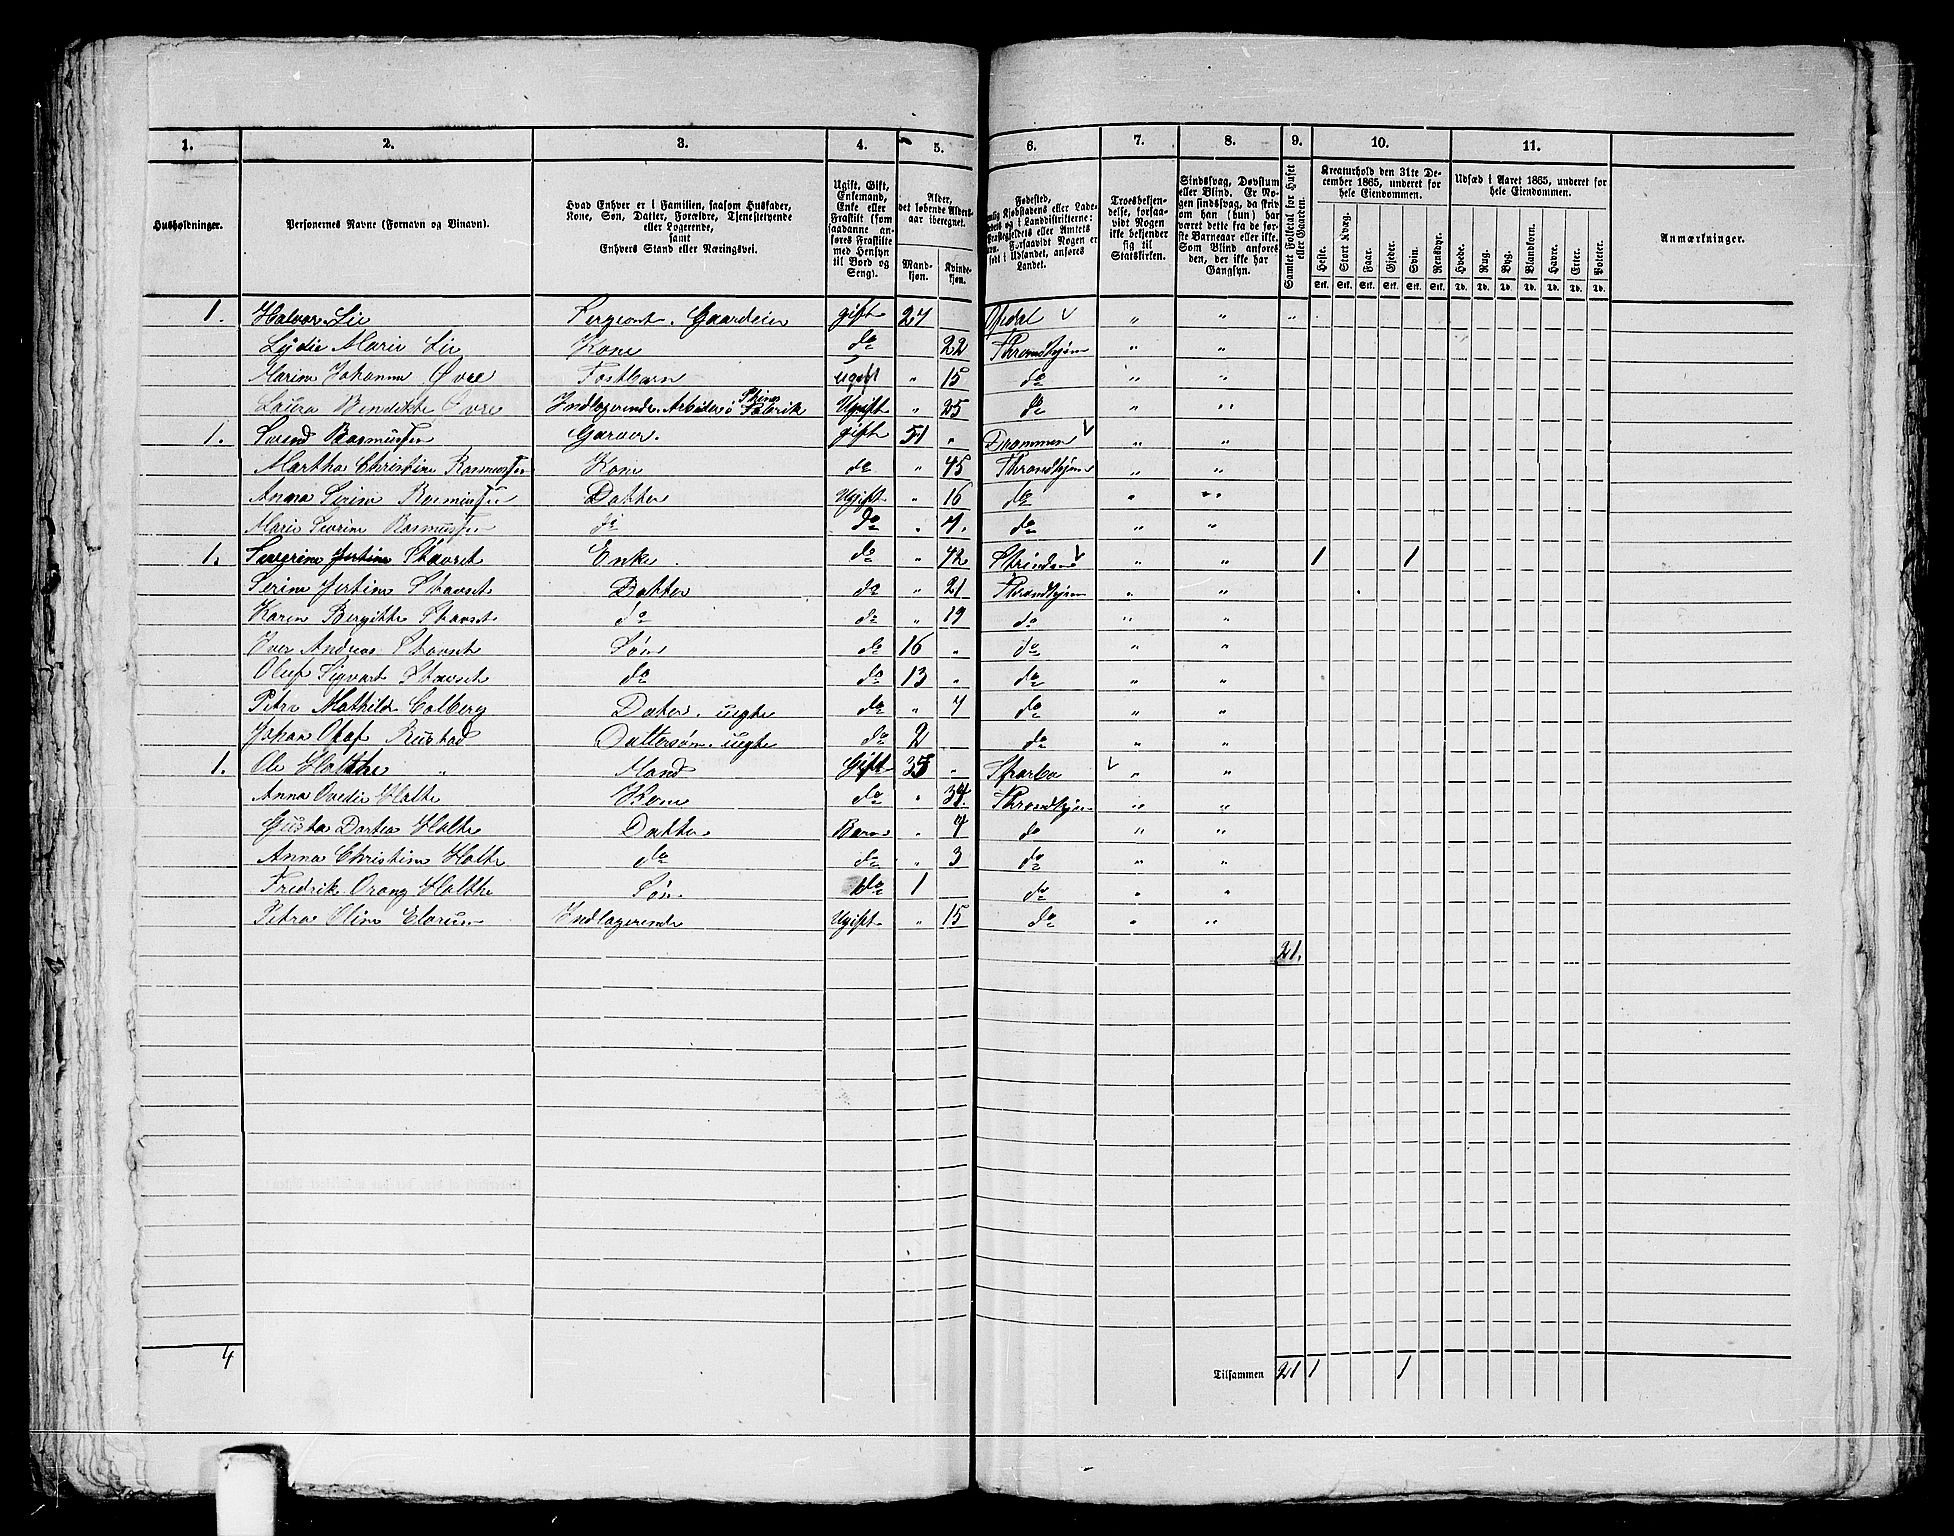 1. 2. 3. 4. 5. 6. 7. 8. 9. 10. 11.
Husholdninger.
Personernes Navne (Fornavn og Binavn).
Hvad Enhver er i Familien, saasom Husfader, Kone, Søn, Datter, Forældre, Tjenestetyende eller Logerende, samt Enhvers Stand eller Næringsvei.
Ugift, Gift, Enkemand, Enke eller Fraskilt (som saadanne anføres Fraskilte med Hensyn til Bord og Seng).
Alder, det løbende Aldersaar iberegnet.
Mandkjøn. Kvindekjøn.
Fødested,
Troesbekjendelse, forsaavidt Nogen ikke bekjender sig til Statskirken.
Sindssvag, Døvstum eller Blind. Er Nogen sindssvag, da skrives om han (hun) har været dette fra de første Barneaar eller ikke. Som Blind anføres den, der ikke har Gangsyn.
Samlet Folketal for Huset eller Gaarden.
Kreaturhold den 31te December 1865, underet for hele Eiendommen.
Heste. Stort Kvæg. Faar. Gjeder. Svin. Rensdyr.
Stk. Stk. Stk. Stk. Stk. Stk.
Udsæd i Aaret 1865, underet for hele Eiendommen.
Hvede. Rug. Byg. Blandkorn. Havre. Erter. Poteter.
Td. Td. Td. Td. Td. Td. Td.
Anmærkninger.
1. Halvor Lie Sergeant. Gaardeier gift 27 Opdal " " "
Lydie Marie Lie Kone do 22 Throndhjem " "
Marine Johanne Øvre Fostbarn ugift " 15 do " "
Laura Bendikte Øvre Indlogerende Arbeder i Fabrik Ugift " 25 do " "
1. Svend Rasmussen Garver. gift 51 " Drammen " "
Martha Christine Rasmussen Kone do " 45 Throndhjem " "
Anna Serine Rasmussen Datter Ugift " 16 do " "
Marie Severine Rasmussen do do " 7. do " "
1. Severine Stavset Enke do " 42 Strinden " " 1 1
Serine Jertine Stavset Datter do " 21 Throndhjem " "
Karen Bergitte Stavset do do " 19 do " "
Iver Andreas Stavset Søn do 16 " do " "
Oluf Sigvart Stavset do do 13 " do " "
Petra Mathilde Colberg Dater. uegte do " 7 do " "
Johan Olaf Rustad Dattersøn. uegte do 2 do " "
1. Ole Holthe Mand Gift 35 " Sparbo " "
Anna Ovedie Holte Kone do " Throndhjem " "
Gusta Dortea Holte Datter Barn " 7 do " "
Anna Christine Holte do do " 3 do " "
Fredrik Orong Holthe Søn. do 1 do " "
Petra Oline Indlogerende Ugift " 15 do " "
21.
4 Tilsammen 21 1 1